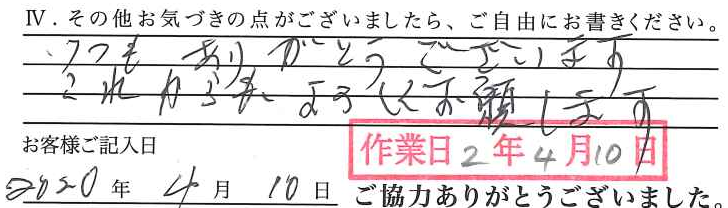 Ⅳ．その他お気づきの点がございましたら、ご自由にお書きください。
いつも ありがとうございます
これからも よろしくお願します
お客様ご記入日
作業日 2年4月10日
2020年 4月 10日 ご協力ありがとうございました。